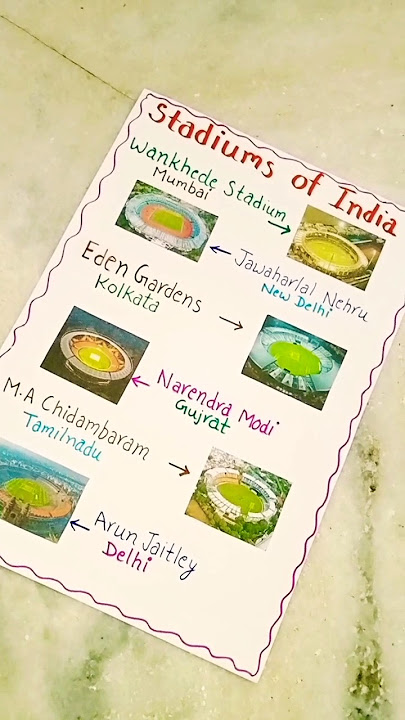 Stadiums of India
Wankhede Stadium
Mumbai
Jawaharlal Nehru
New Delhi
Eden Gardens
Kolkata
Narendra Modi
Gujrat
M.A Chidambaram
Tamilnadu
Arun Jaitley
Delhi